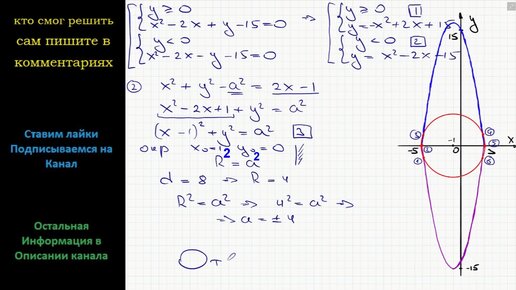 кто смог решить
сам пишите в
комментариях
Ставим лайки
Подписываемся на
Канал
Остальная
Информация в
Описании канала
y ≥ 0
x² - 2x + y - 15 = 0
y < 0
x² - 2x - y - 15 = 0
⇒
y ≥ 0 [1]
y = -x² + 2x + 15
y < 0 [2]
y = x² - 2x - 15
② x² + y² - a² = 2x - 1
x² - 2x + 1 + y² = a²
(x - 1)² + y² = a² [3]
окр x₀=1 y₀=0
R² = a²
d = 8 ⇒ R = 4
R² = a² ⇒ 4² = a² ⇒
⇒ a = ± 4
y
15
x
-1
0
-15